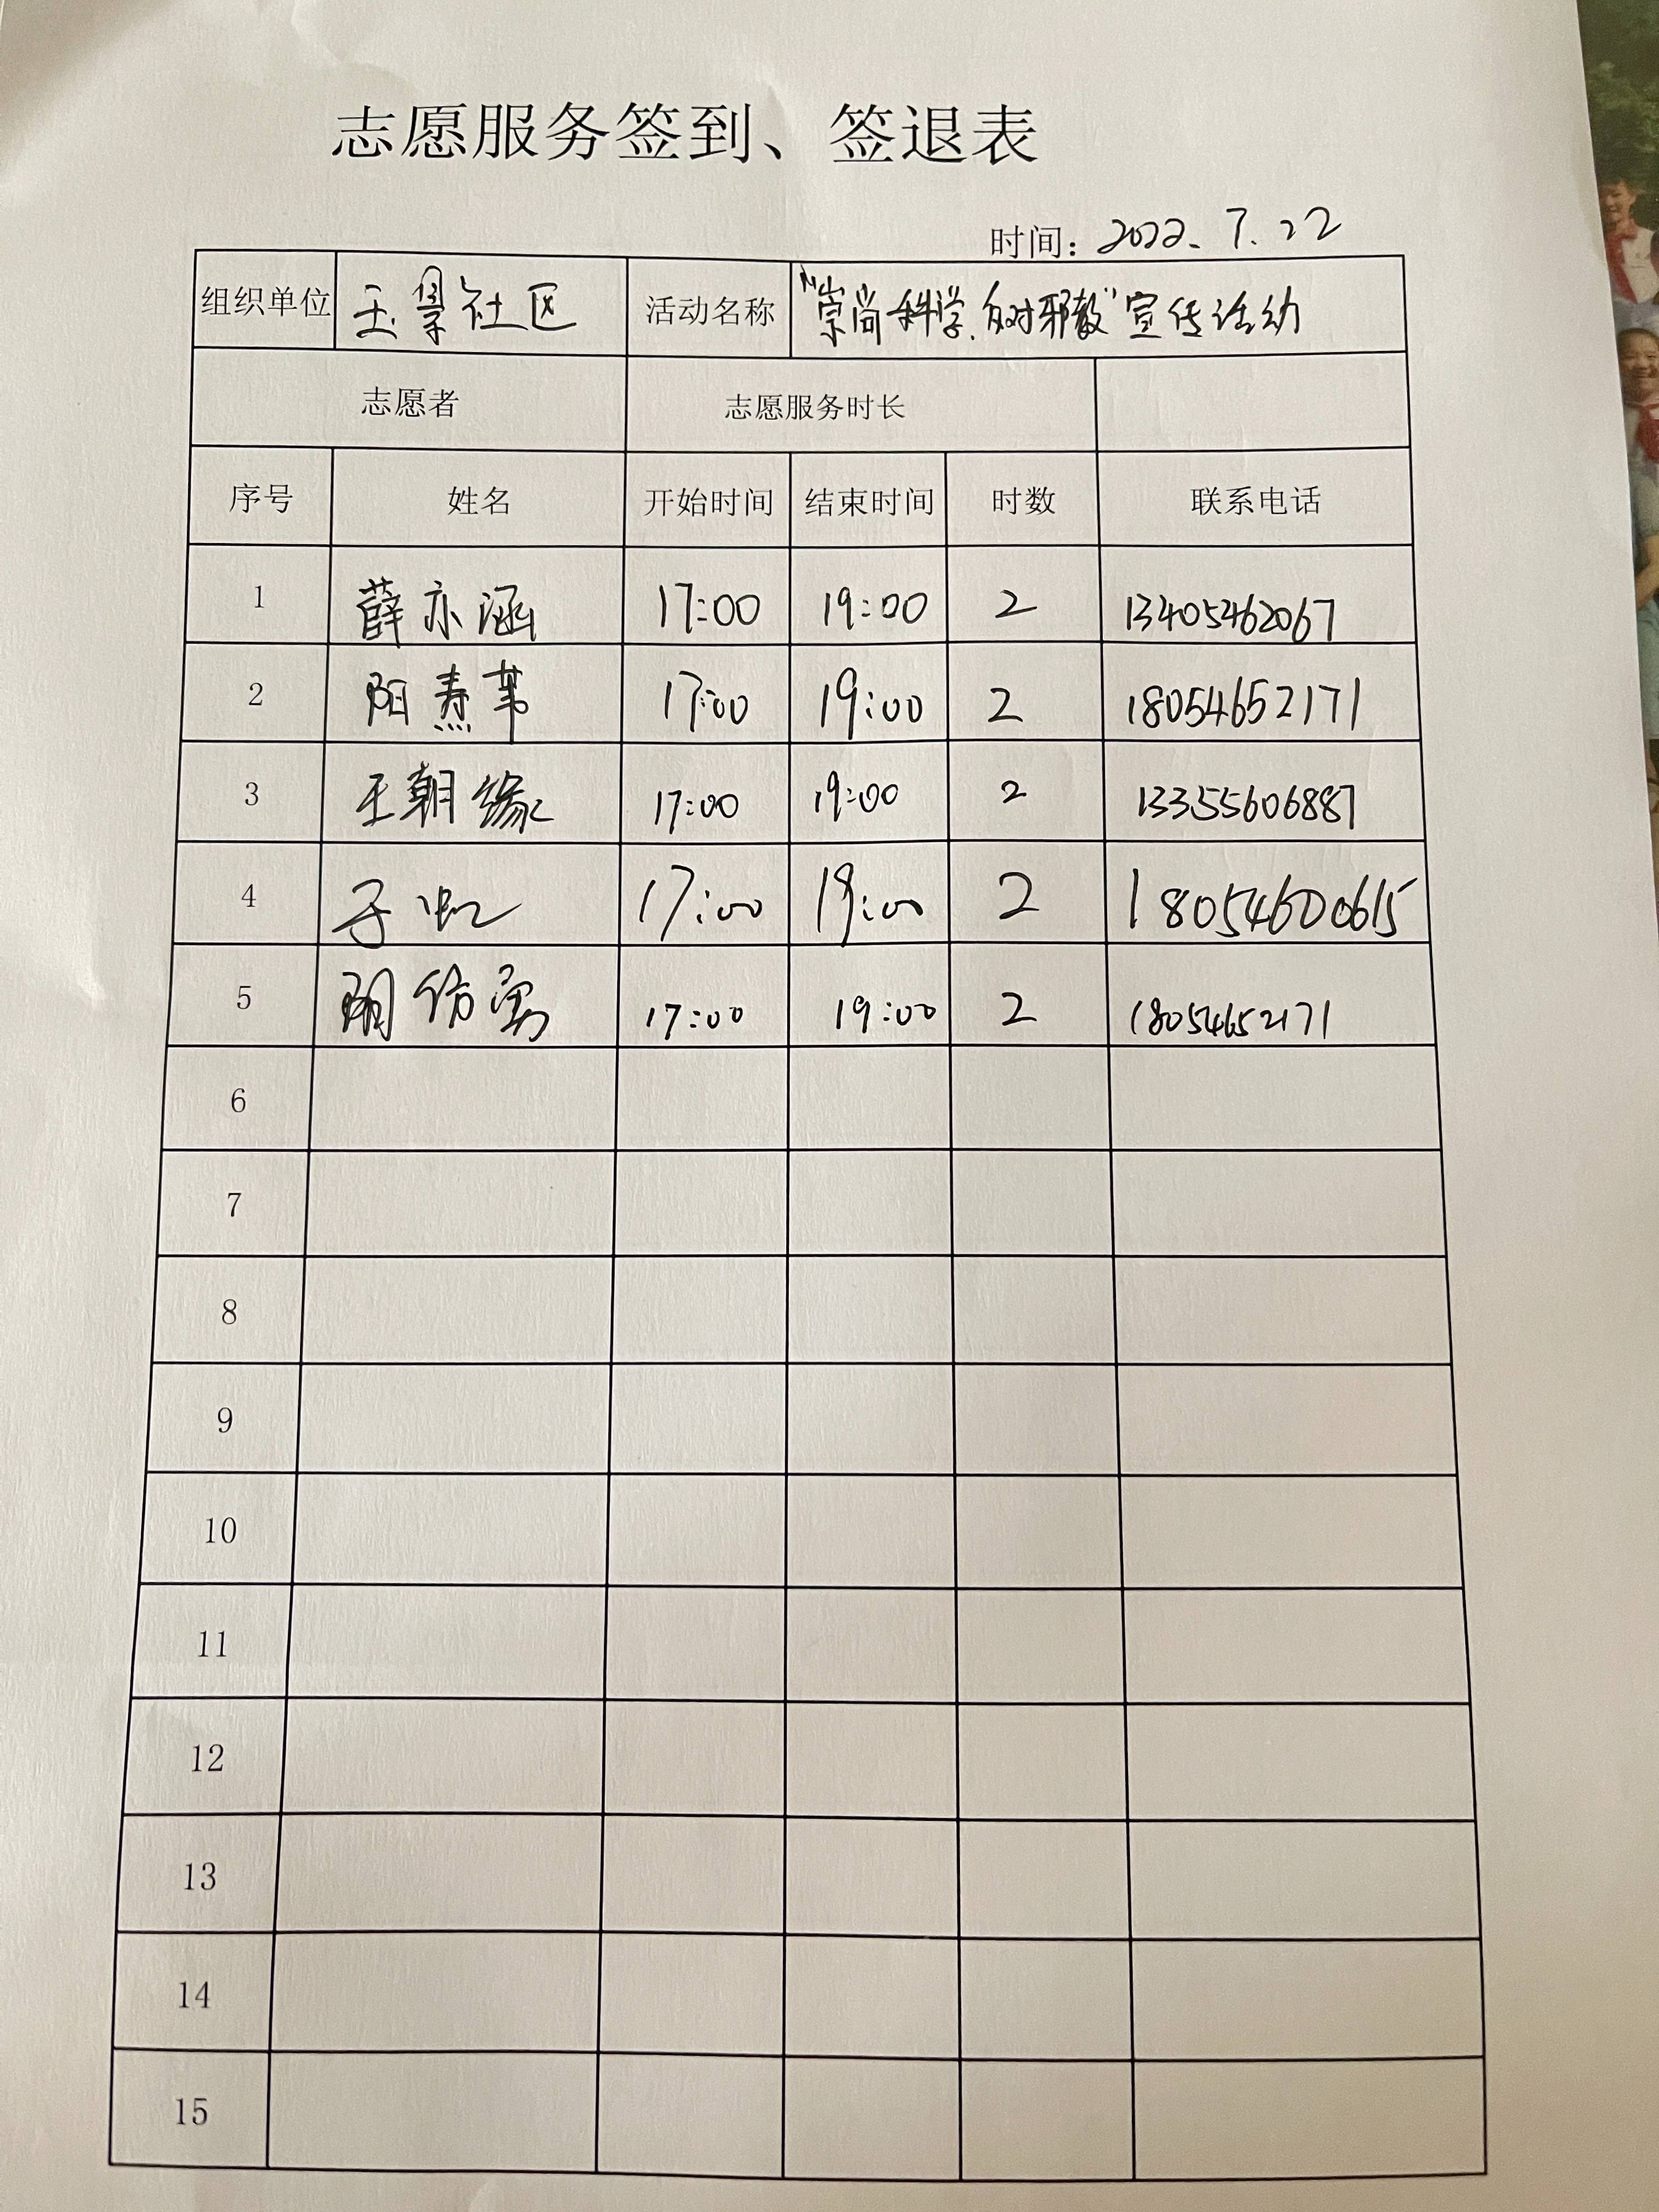 志愿服务签到、签退表
时间：2022.7.22
组织单位 玉景社区 活动名称 “崇尚科学.反对邪教”宣传活动
志愿者 志愿服务时长
序号 姓名 开始时间 结束时间 时数 联系电话
1 薛亦涵 17:00 19:00 2 13405462067
2 阳焘苇 17:00 19:00 2 18054652171
3 王朝缘 17:00 19:00 2 13355606887
4 于虹 17:00 19:00 2 18054600615
5 17:00 19:00 2 18054652171
6
7
8
9
10
11
12
13
14
15